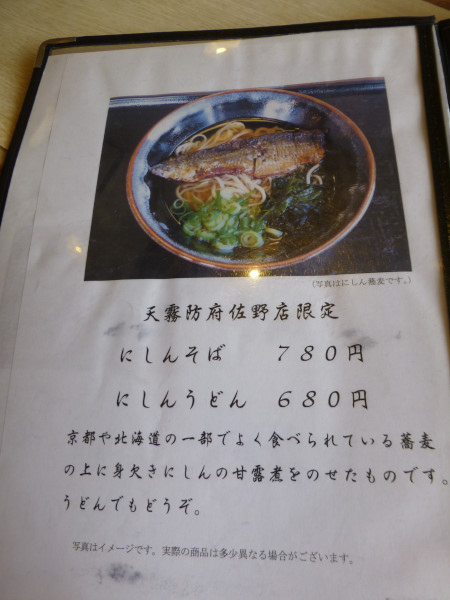 (写真はにしん蕎麦です。)
天霧防府佐野店限定
にしんそば　780円
にしんうどん　680円
京都や北海道の一部でよく食べられている蕎麦
の上に身欠きにしんの甘露煮をのせたものです。
うどんでもどうぞ。
写真はイメージです。実際の商品は多少異なる場合がございます。